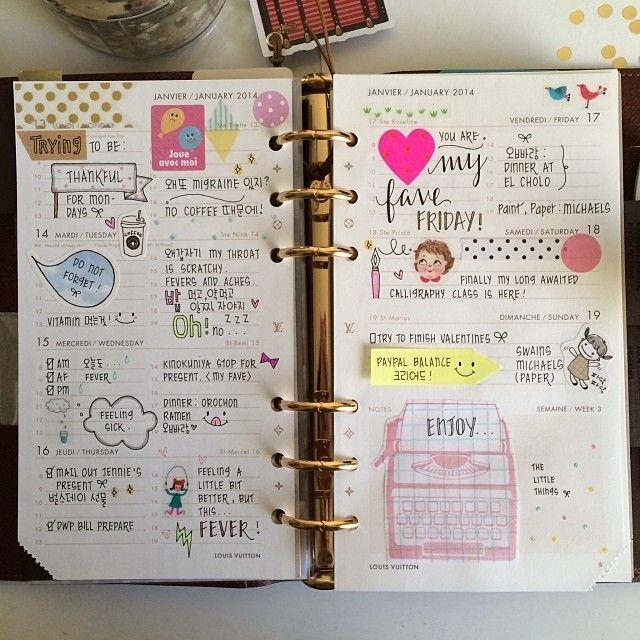 JANVIER / JANUARY 2014
13 LUNDI / MONDAY
TRYING TO BE:
THANKFUL
FOR MON-
DAYS
Joue
avec moi
왜또 MIGRAINE 있지?
NO COFFEE 때문에!
14 MARDI / TUESDAY
Ste Nina 14
COFFEE
DO NOT
FORGET!
VITAMIN 먹는거!
왜갑자기 MY THROAT
IS SCRATCHY.
FEVERS AND ACHES.
밥 먹고, 약먹고
일찍 자야지
Oh! no...
Z Z Z
15 MERCREDI / WEDNESDAY
St Remi 15
AM 오늘도...
AF FEVER
PM
FEELING
SICK.
KINOKUNIYA STOP FOR
PRESENT. (MY FAVE)
DINNER: OROCHON
RAMEN
오빠랑
16 JEUDI / THURSDAY
St Marcel 16
MAIL OUT JENNIE'S
PRESENT
벌스데이 선물
DWP BILL PREPARE
FEELING A
LITTLE BIT
BETTER, BUT
THIS...
FEVER!
LOUIS VUITTON
JANVIER / JANUARY 2014
17 Ste Roseline
VENDREDI / FRIDAY 17
YOU ARE
my
fave
FRIDAY!
오빠랑:
DINNER AT
EL CHOLO
Paint, Paper: MICHAELS
18 Ste Prisca
SAMEDI / SATURDAY 18
FINALLY MY LONG AWAITED
CALLIGRAPHY CLASS IS HERE!
19 St Marius
DIMANCHE / SUNDAY 19
TRY TO FINISH VALENTINES
PAYPAL BALANCE
크리어드!
SWAINS
MICHAELS
(PAPER)
NOTES
SEMAINE / WEEK 3
ENJOY...
THE
LITTLE
THINGS
LOUIS VUITTON